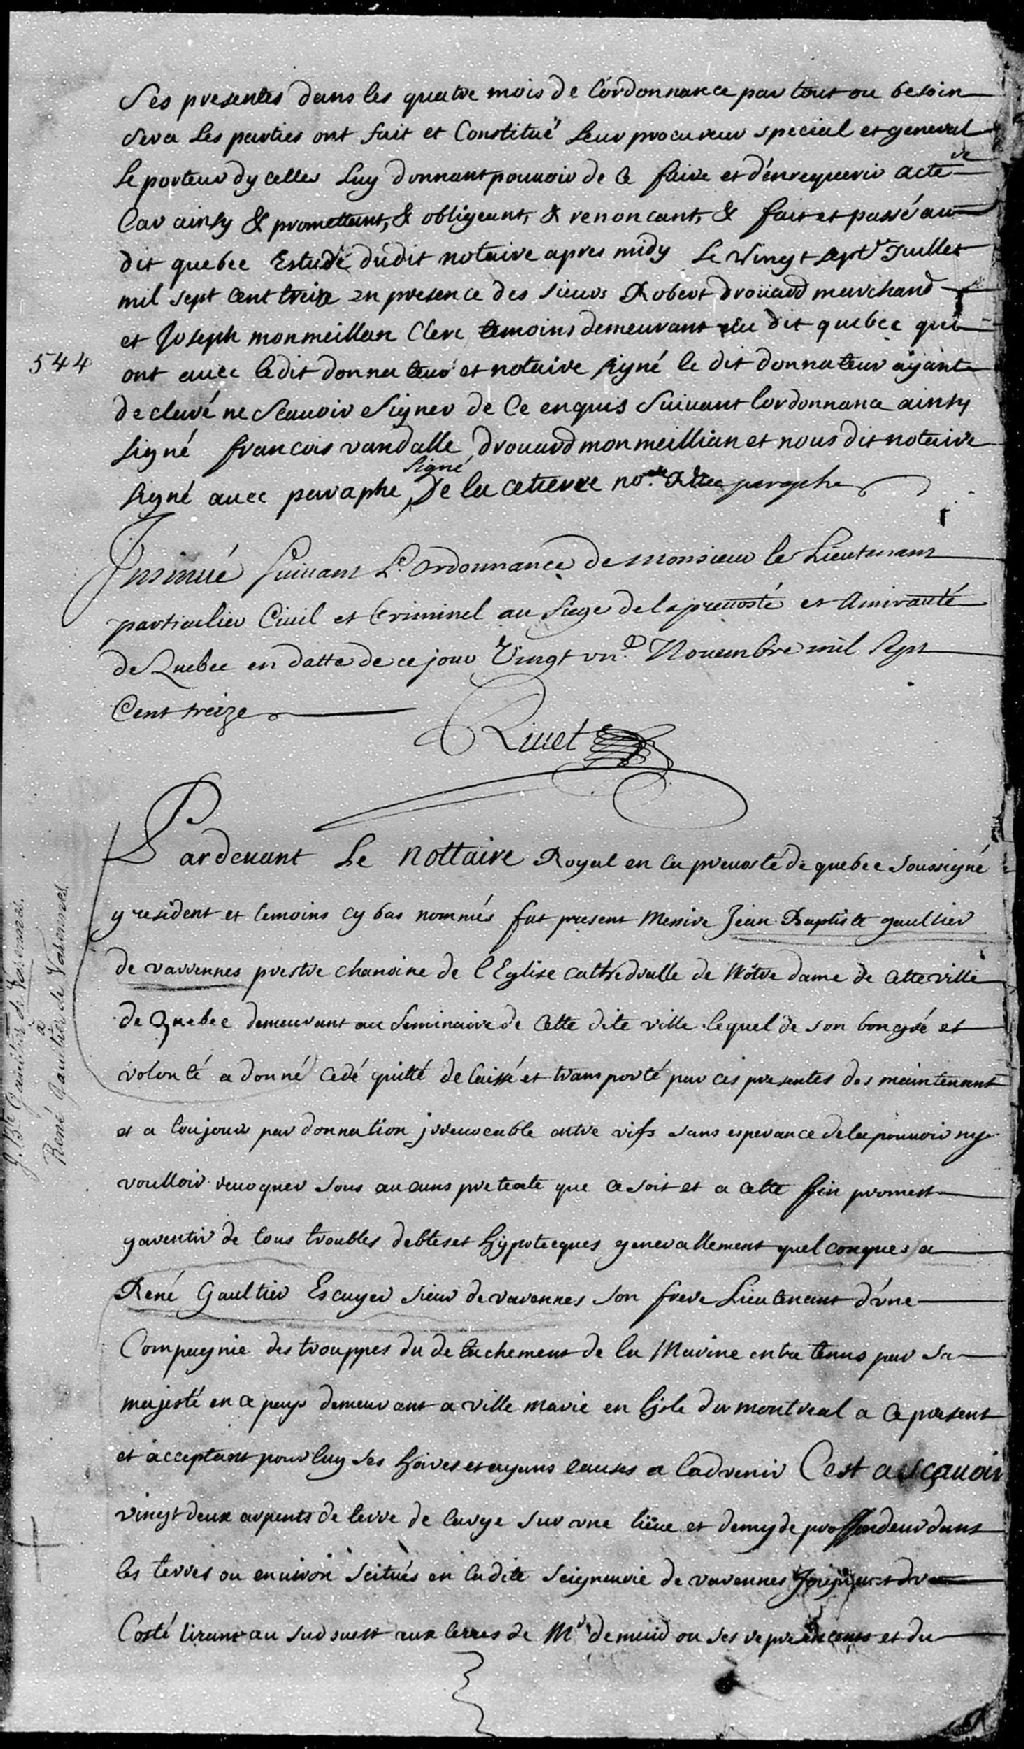 Ses presentes dans les quatre mois de l'ordonnance par tout ou besoin
sera Les parties ont fait et Constitué leur procureur special et general
le porteur dycelles luy donnant pouvoir de ce faire et d'en requerir acte
Car ainsy & promettant, & obligeant, & renoncant, & fait et passé au
dit quebec Estude dudit notaire apres midy Le Vingt sept Juillet
mil sept cent treize en presence des sieurs Robert drouard marchand
et Joseph monmeillan Clerc temoins demeurant au dit quebec qui
544
ont avec ledit donnateur et notaire signé le dit donnateur ayant
declaré ne scauoir signer de Ce enquis suivant l'ordonnance ainsy
signé francois vandalle, drouard monmeillian et nous dit notaire
signé avec paraphe, signé De la cetierre no.re avec paraphe
Insinué suivant L'ordonnance de monsieur le Lieutenant
particulier Civil et Criminel au siege de la preuosté et Amirauté
de Quebec en datte de ce jour Vingt un.e Nouembre mil sept
Cent treize
Riuet
Pardeuant Le nottaire Royal en la preuosté de quebec soussigné
y resident et temoins cy bas nommés fut present Messire Jean Baptiste gaultier
de varennes prestre chanoine de l'Eglise cathedralle de Notre dame de cette ville
de Quebec demeurant au seminaire de cette dite ville lequel de son bon gré et
volonté a donné cedé quitté delaissé et transporté par ces presentes des maintenant
et a toujours par donnation jrreuocable entre vifs sans esperance de la pouuoir ny
voulloir reuoquer sous aucuns pretexte que ce soit et a cette fin promest
garentir de tous troubles debtes et hypotecques generallement quelconques a
René Gaultier Escuyer sieur de varennes son frere Lieutenant d'une
Compagnie des trouppes du detachement de la Marine entretenus par sa
majesté en ce pays demeurant a ville marie en lisle du montreal a ce present
et acceptant pour luy ses hoires et ayans causes a l'advenir C'est a sçauoir
vingt deux arpents de terre de large sur une lieue et demy de proffondeur dans
les terres ou enuiron scitués en ladite seigneurie de varennes joignant d'un
Costé tirant au sud ouest aux terres de Mr demuid ou ses representants et du
J. Bte Gaultier de Varennes
à
René Gaultier de Varennes